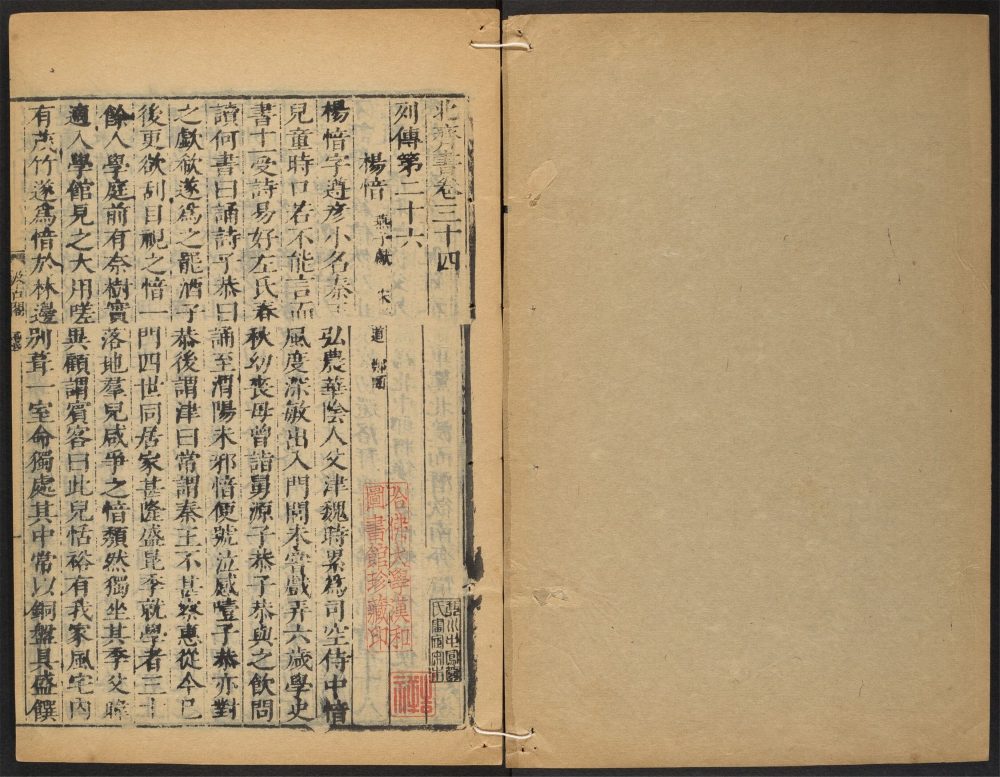 北齊書卷三十四
列傳第二十六
楊愔 燕子獻 宋 道 鄭頤
楊愔字遵彥小名秦王弘農華陰人父津魏時累爲司空侍中愔
兒童時口若不能言而風度深敏出入門閭未嘗戲弄六歲學史
書十一受詩易好左氏春秋幼喪母曾詣舅源子恭子恭與之飲問
讀何書曰誦詩子恭曰誦至渭陽未邪愔便號泣感噎子恭亦對
之歔欷遂爲之罷酒子恭後謂津曰常謂秦王不甚察惠從今已
後更欲刮目視之愔一門四世同居家甚隆盛昆季就學者三十
餘人學庭前有柰樹實落地羣兒咸爭之愔頹然獨坐其季父暐
適入學館見之大用嗟異顧謂賓客曰此兒恬裕有我家風宅內
有茂竹遂爲愔於林邊別葺一室命獨處其中常以銅盤具盛饌
汲古閣
哈佛大學漢和
圖書館珍藏印